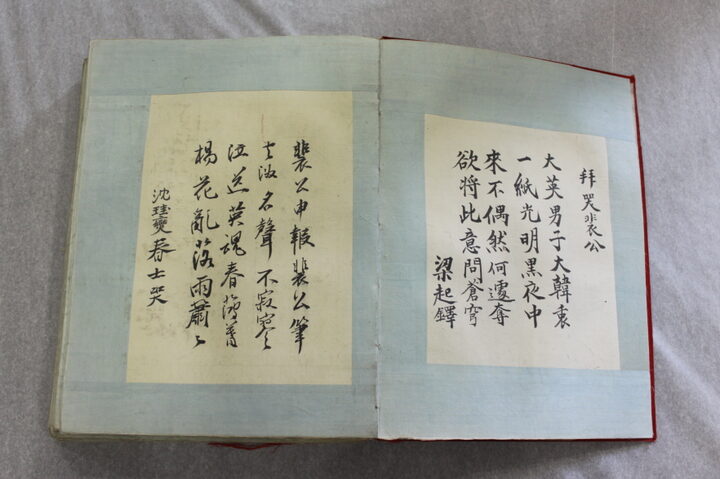 拜哭裴公
大英男子大韓衷
一紙光明黑夜中
來不偶然何遽奪
欲將此意問蒼穹
梁起鐸
裴公申報裴公筆
去後名聲不寂寥
泣送英魂春薄暮
楊花亂落雨蕭々
沈 燮春士哭